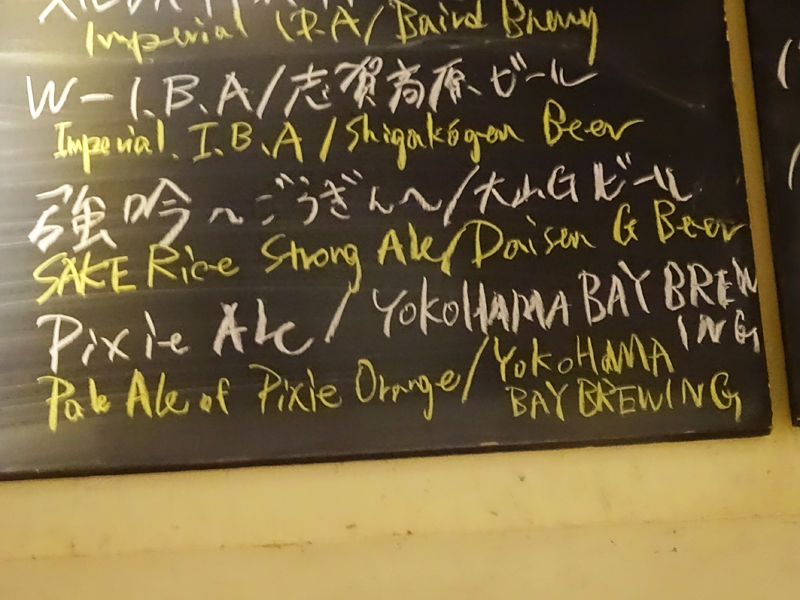 Imperial I.P.A/Baird Brewing
W-I.B.A/志賀高原ビール
Imperial I.B.A/Shigakōgen Beer
強吟〜ごうぎん〜/大山Gビール
SAKE Rice Strong Ale/Daisen G Beer
Pixie Ale/YOKOHAMA BAY BREW
ING
Pale Ale of Pixie Orange/YOKOHAMA
BAY BREWING